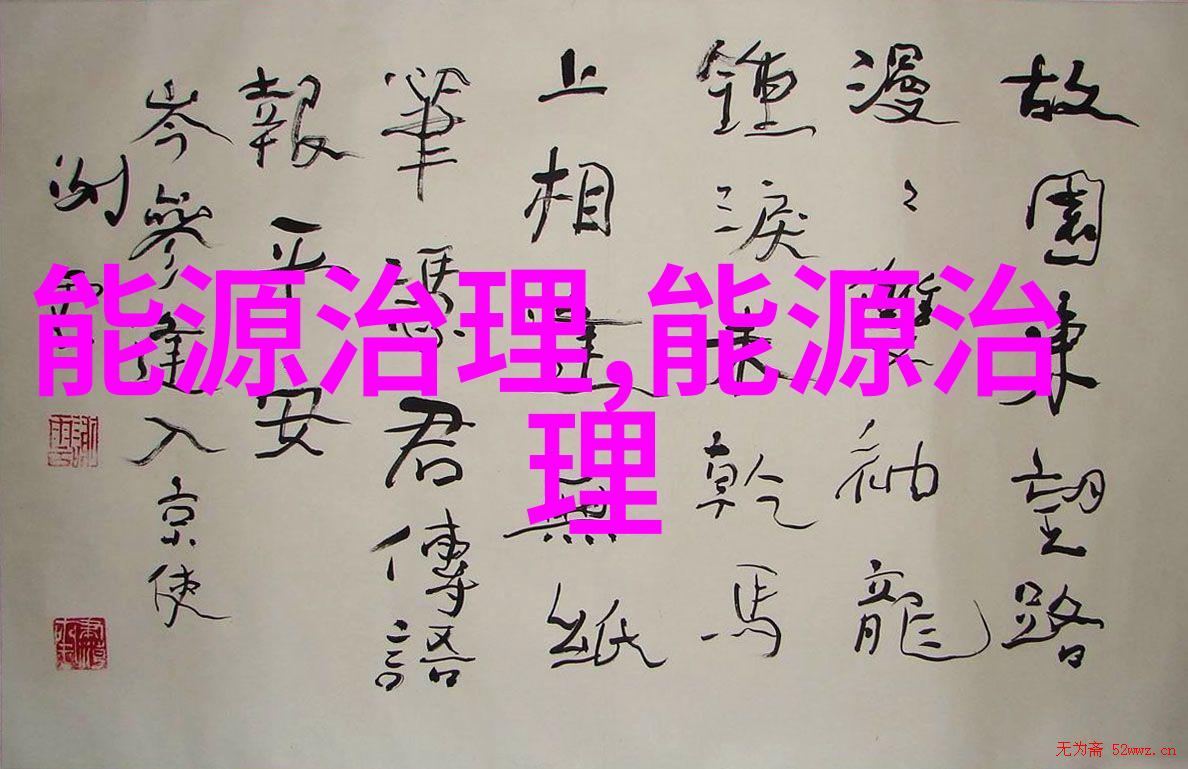 能源治理,能源治
理
故園東望路
漫〻雙袖龍
鍾淚乾馬
上相逢無紙
筆憑君傳語
報平安
岑參逢入京使
无为斋 52wwz.cn